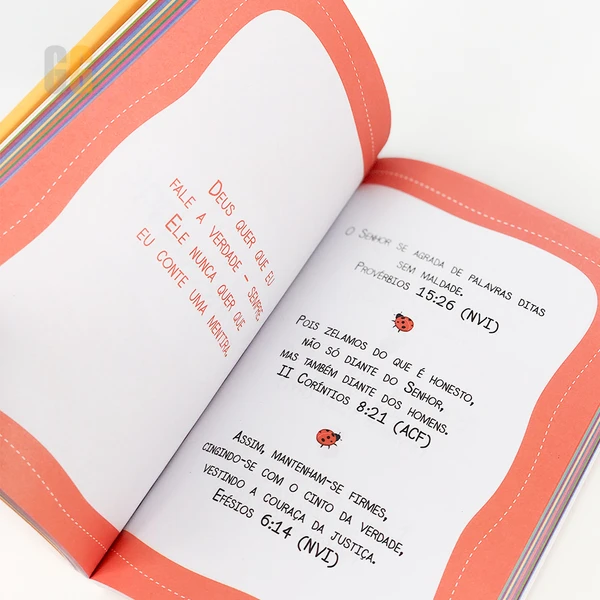 GR
DEUS QUER QUE EU
FALE A VERDADE – SEMPRE.
ELE NUNCA QUER QUE
EU CONTE UMA MENTIRA.
O SENHOR SE AGRADA DE PALAVRAS DITAS
SEM MALDADE.
PROVÉRBIOS 15:26 (NVI)
POIS ZELAMOS DO QUE É HONESTO,
NÃO SÓ DIANTE DO SENHOR,
MAS TAMBÉM DIANTE DOS HOMENS.
II CORÍNTIOS 8:21 (ACF)
ASSIM, MANTENHAM-SE FIRMES,
CINGINDO-SE COM O CINTO DA VERDADE,
VESTINDO A COURAÇA DA JUSTIÇA.
EFÉSIOS 6:14 (NVI)